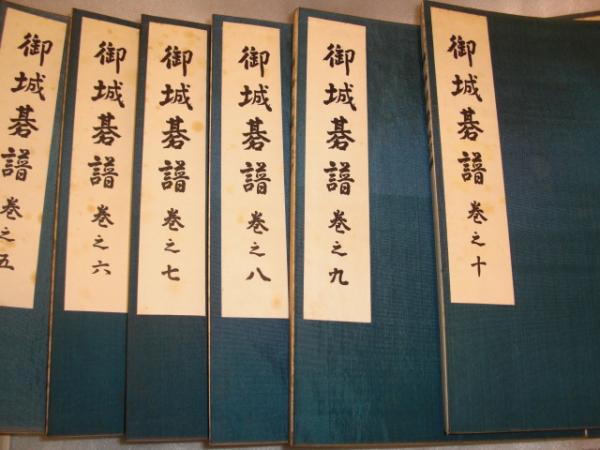 御城碁譜 巻之五
御城碁譜 巻之六
御城碁譜 巻之七
御城碁譜 巻之八
御城碁譜 巻之九
御城碁譜 巻之十